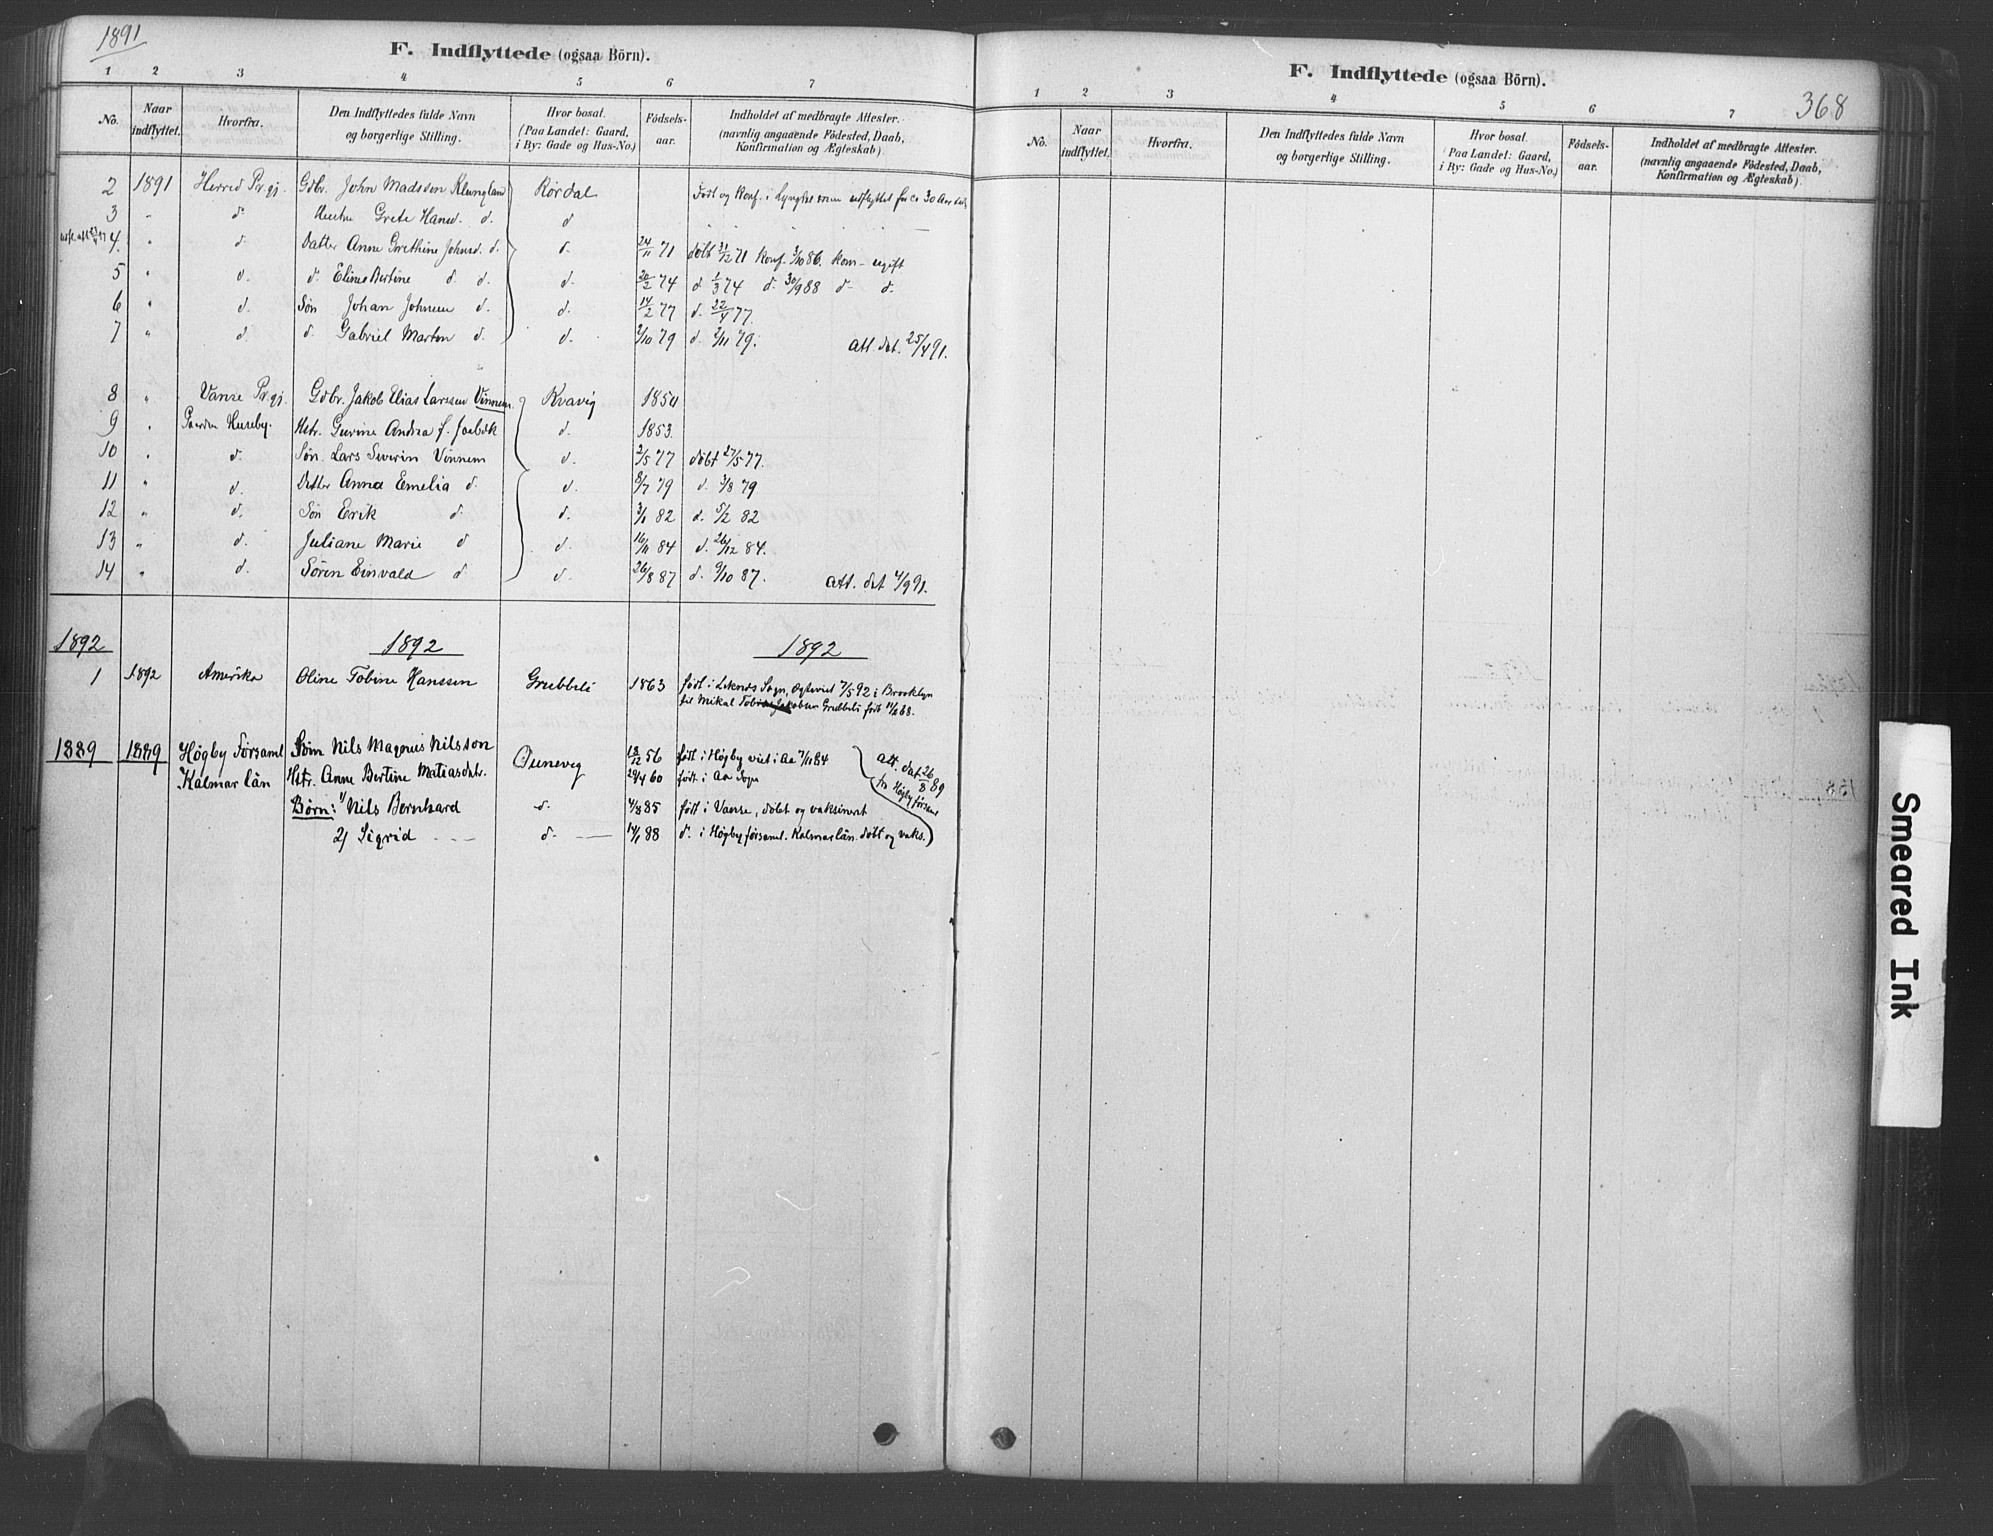 1891
F. Indflyttede (ogsaa Börn).
1 2 3 4 5 6 7
No. Naar indflyttet. Hvorfra. Den Indflyttedes fulde Navn og borgerlige Stilling. Hvor bosat. (Paa Landet: Gaard, i By: Gade og Hus-No.) Födsels-aar. Indholdet af medbragte Attester. (navnlig angaaende Födested, Daab, Konfirmation og Ægteskab).
2 1891 Herred Pr.gj. Gdbr. John Madssen Rördal Født og Konf. i Lyngdal men udflyttet for ca 30 Aar
3 " d. Hustru Grete Hansd. d. d
4 " d. Datter Anne Grethine Johnsd. d. d. 24/11 71 döbt 31/12 71 Konf. 3/10 86. kom- ugift
5 " d. d. Eline Bertine d. d. d. 20/2 74 d. 1/3 74 d. 30/9 88 d. d.
6 " d. Søn Johan Johnsen d. d. 14/2 77 d. 22/4 77.
7 " d. d. Gabriel Marton d. d. 2/10 79 d. 2/11 79. Att. dat. 25/4 91.
8 " Vanse Pr.gj. Gdbr. Jakob Elias Larssen Vinnem Kvavig 1850
9 " Gaarden Huseby. Hstr. Gurine Andrea f. d. 1853.
10 " d. Søn Lars Severin Vinnem d. 2/5 77 döbt 27/5 77.
11 " d. Datter Anna Emelia d. d. 8/7 79 d. 3/8 79
12 " d. Søn Erik d. d. 3/1 82 d. 5/2 82
13 " d. Juliane Marie d d. 16/11 84 d. 26/12 84.
14 " d. Sören Einvald d d. 26/8 87 d. 9/10 87. Att. dat 4/9 91.
1892 1892 1892
1 1892 Amerika Oline Tobine Hanssen Grubbeli 1863 født i Leknes Sogn, Ægteviet 7/5 92 i Brooklyn
til Mikal Jakobsen Grubbeli født 11/2 68.
1889 1889 Högby Församl. Nils Magenus Nilsson Ounevig 18/12 56 født i Högby viet i Aa 7/11 84 Att. dat 26/8 89
Kalmar län Hstr. Anne Bertine Matiasdtr. 29/4 60 født i Aa Sogn fra Högby förs.
Børn: 1/ Nils Bernhard d. 4/3 85 født i Vanse, døbt og vaksineret
2/ Sigrid d. 14/1 88 d. i Högby församl. Kalmar län. døbt og vaks.
368
F. Indflyttede (ogsaa Börn).
1 2 3 4 5 6 7
No. Naar indflyttet. Hvorfra. Den Indflyttedes fulde Navn og borgerlige Stilling. Hvor bosat. (Paa Landet: Gaard, i By: Gade og Hus-No.) Födsels-aar. Indholdet af medbragte Attester. (navnlig angaaende Födested, Daab, Konfirmation og Ægteskab).
Smeared Ink